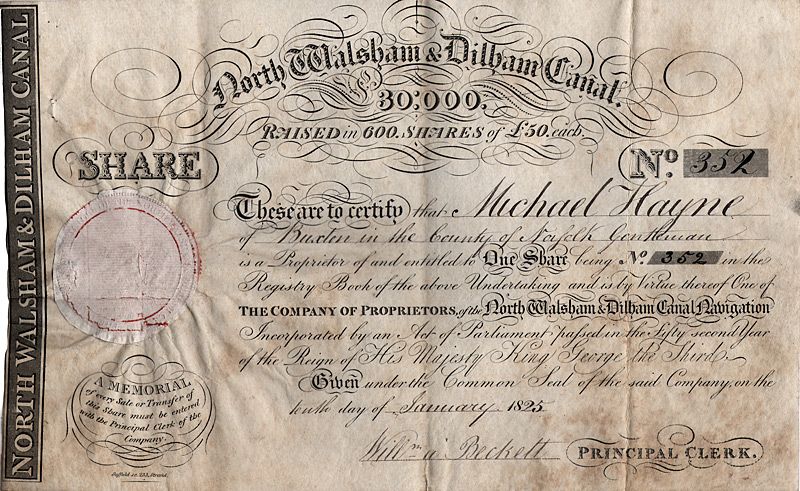 NORTH WALSHAM & DILHAM CANAL
North Walsham & Dilham Canal.
£30:000.
RAISED in 600 SHARES of £50. each.
SHARE
No. 352
These are to certify that Michael Hayne
of Buxton in the County of Norfolk Gentleman
is a Proprietor of and entitled to One Share being No. 352 in the
Registry Book of the above Undertaking and is by Virtue thereof One of
THE COMPANY OF PROPRIETORS, of the North Walsham & Dilham Canal Navigation
Incorporated by an Act of Parliament passed in the Fifty second Year
of the Reign of His Majesty King George the Third.
Given under the Common Seal of the said Company, on the
tenth day of January 1825
Willm. à Beckett PRINCIPAL CLERK.
A MEMORIAL
of every Sale or Transfer of
this Share must be entered
with the Principal Clerk of the
Company.
sc. 233, Strand.